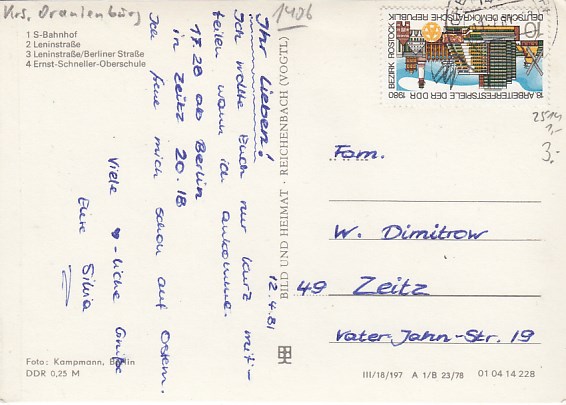 Krs. Oranienburg
1406
1 S-Bahnhof
2 Leninstraße
3 Leninstraße/Berliner Straße
4 Ernst-Schneller-Oberschule
12.4.81
Ihr Lieben!
Ich wollte Euch nur kurz mit-
teilen wann ich ankomme.
17.28 ab Berlin
in Zeitz 20.18
Ich freue mich schon auf Ostern.
Viele ♥-liche Grüße
Eure Silvia
Foto: Kampmann, Berlin
DDR 0,25 M
BILD UND HEIMAT · REICHENBACH (VOGTL)
18. ARBEITERFESTSPIELE DER DDR
BEZIRK ROSTOCK 1980
DEUTSCHE DEMOKRATISCHE REPUBLIK
10
2514
1,-
3.-
Fam.
W. Dimitrow
49 Zeitz
Vater-Jahn-Str. 19
III/18/197 A 1/B 23/78 01 04 14 228